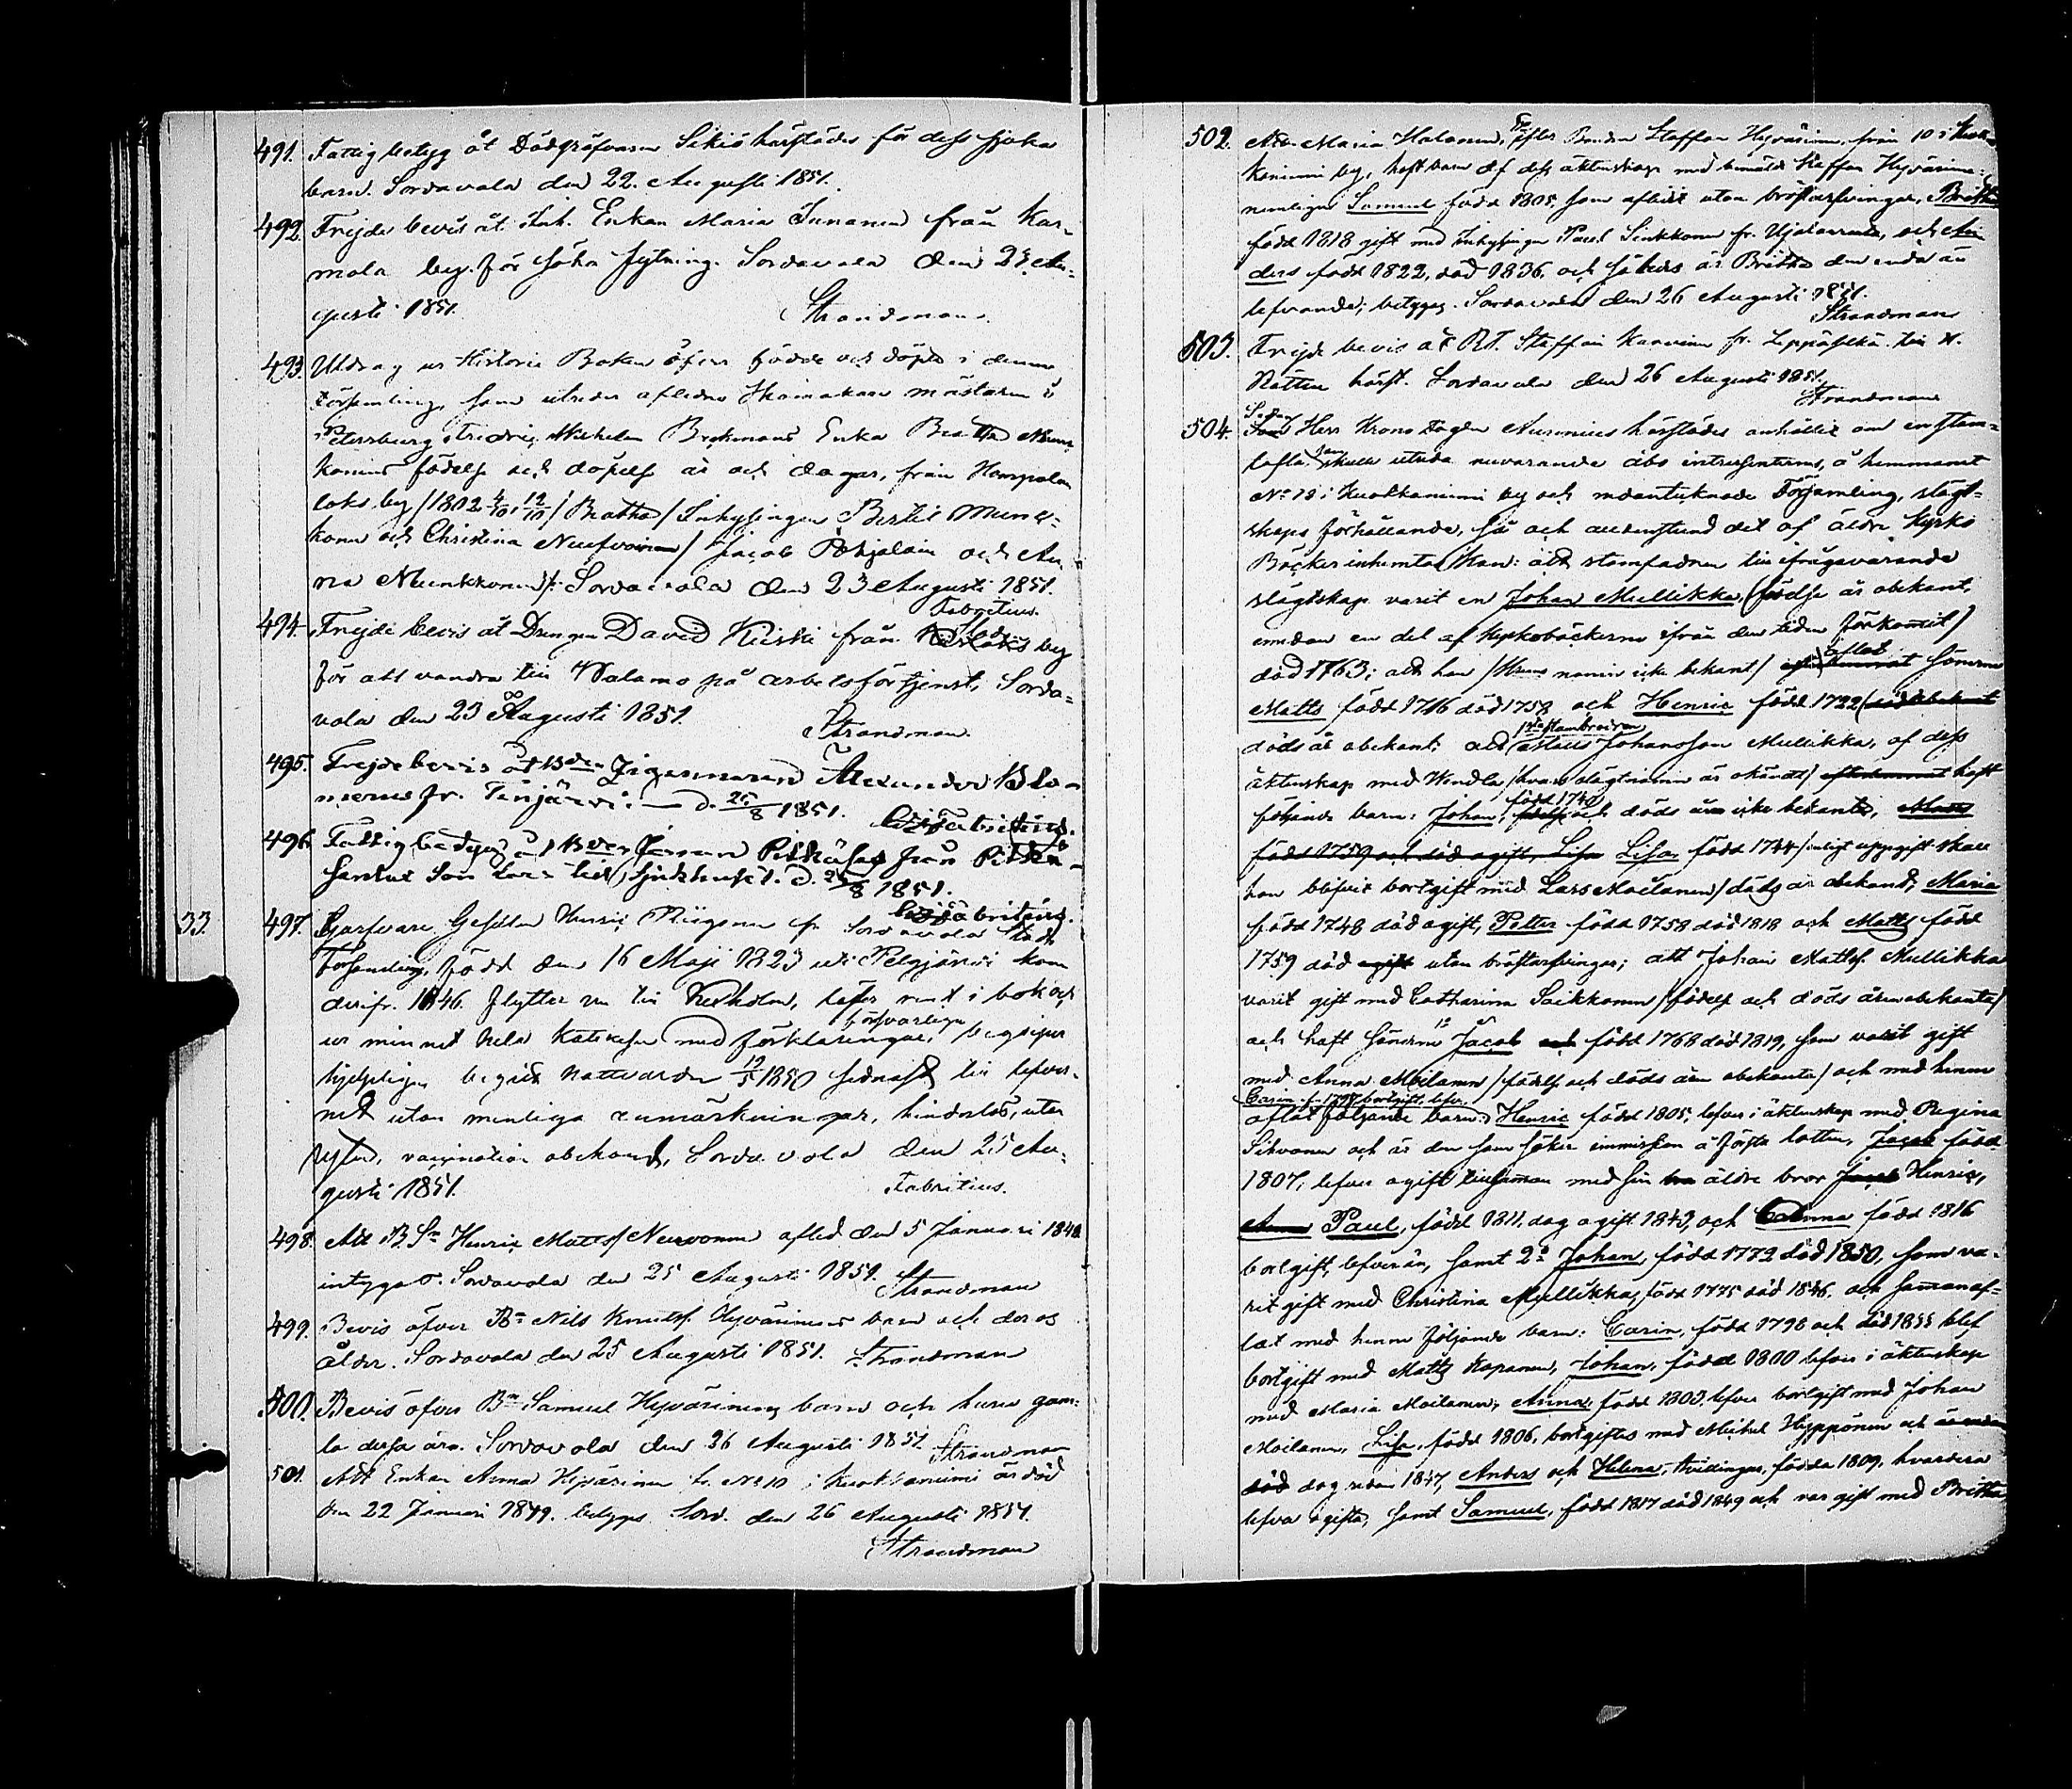 491. Fattigbetyg åt Dödgräfvaren Sikiö härstädes för dess sjuka
barn. Sordavala den 22. Augusti 1851.
492. Frejdebevis åt Inh. Enkan Maria Iunanen från Kar-
mala by. för söka flytning. Sordavala den 23 Au-
gusti 1851. Strandman.
493. Utdrag ur Historie Boken öfver födde och döpte i denna
Församling, som utreder aflidne mästaren i
Petersburg Wilhelm Beckmans Enka Beatha Munck-
konens födelse och döpelse år och dagar, från Hympölän
loks by /1802 4/10, 12/10/ Beatha/ Inhysingen Bertil Munck-
konen och Christina Neufvoinen/ Jacob Pohjalain och An-
na Munkkonen/: Sordavala den 23 Augusti 1851.
Fabritius.
494. Frejdebevis åt Drengen David Kiiski från by
för att vandra till Walamo på arbetsförtjenst, Sorda-
vala den 23 Augusti 1851. Strandman.
495. Frejdebevis åt Bden Zigenaren Alexander Blo-
merus fr. Tenjärvi: d. 25/8 1851. Fabritius.
496. Fattigbetyg åt Bden Pitkänen från Pitkä-
d. 25/8 1851.
Fabritius.
33. 497. Garfvare Gesällen Henric Piigonen fr. Sordavala Stads
Församling, född den 16 Maji 1823 uti Pelgjärvi kom
derifr. 1846. flyttar nu till Kexholm, läser rent i bok och
ur minnet hela Katekesen med förklaringar, försvarligen begriper
hjelpligen begick nattvarden 12/5 1850 sednast till lefver-
net utan menliga anmärkningar, hinderlös, utan
lyten, vaccination obekant, Sordavala den 25 Au-
gusti 1851. Fabritius.
498. Att B. Sn Henric Matts Neuvonen afled den 5 Januari 1848
intygas. Sordavala den 25 Augusti 1851. Strandman
499. Bevis öfver Bn Nils Knutss. Hyvärinens barn och deras
ålder. Sordavala den 25 Augusti 1851. Strandman
500. Bevis öfver Bn Samuel Hyvärinens barn och huru gam-
la dessa äro. Sordavala den 26 Augusti 1851. Strandman
501. Att Enkan Anna Hyvärinen fr. No 10 i Kuokkaniemi är död
den 22 Januari 1849. betygas Sord. den 26 Augusti 1851.
Strandman
502. Att Maria Halonen, Enka efter Bonden Staffan Hyvärinen, från 10 i Kuok-
kaniemi by, haft barn af dess äktenskap med bemälde Staffan Hyvärinen:
nemligen Samuel född 1805, som aflidit utan bröstarfvingar, Britha
född 1818 gift med Inhysingen Paul Sinkkonen fr. Ujalanranta, och An-
ders född 1822, död 1836, och således är Britha den enda än
lefvande; betygas. Sordavala den 26 Augusti 1851.
Strandman
503. Frejdebevis åt RT. Staffan Karvinen fr. Leppäselkä till H.
Rätten härst. Sordavala den 26 Augusti 1851.
Strandman
504. Sedan Herr Krono Fogden Aurenius härstädes anhållit om en stam-
tafla, som skulle utreda nuvarande åbo intressenternas, å hemmanet
No 18 i Kuokkaniemi by och mdantecknade Församling, slägt-
skaps förhållande, så och allenstund det af äldre Kyrko
Böcker inhemtas kan: att stamfadren till ifrågavarande
slägtskap varit en Johan Mullikka, (födelse år obekant,
emedan en del af kyrkobäckerna ifrån den tiden förkommit)
död 1763; att han /Hustruns namn icke bekant/ aflat sönerna
Matts född 1716 död 1758 och Henric född 1722 (död obekant
döds år obekant; att 1sta stambrodren Matts Johansson Mullikka, af dess
äktenskap med Wendla /hvars slägtnamn är okändt/ efterkommit haft
följande barn: Johan, född 1740 och döds år icke bekante, Matts
född 1759 och död ogift, Lisa Lisa född 1744 /enligt uppgift skall
hon blifvit bortgift med Lars Moilanen/ döds år obekant, Maria
född 1748 död ogift, Petter född 1758 död 1818 och Matts född
1759 död ogift utan bröstarfvingar; att Johan Mattss. Mullikka
varit gift med Catharina Saikkonen /födelse och döds åren obekanta/
och haft sönerna 1o Jacob och född 1768 död 1819, som varit gift
med Anna Moilanen /födelse och döds åren obekanta/ och med henne
Carin f. 1798 bortgift, lefver.
aflat följande barn: Henric född 1805, lefver i äktenskap med Regina
Sihvonen och är den som söker immission å första lotten, Jacob född
1807, lefver ogift tillsamman med sin bro äldre bror Jacob Henric,
Anna Paul, född 1811, dog ogift 1843, och Anna född 1816
bortgift, lefver än, samt 2o Johan, född 1772 död 1850, som va-
rit gift med Christina Mullikka, född 1775 död 1846. och sammanaf-
lat med henne följande barn: Carin, född 1798 och död 1855 blef
bortgift med Matts Kapanen, Johan, född 1800 lefver i äktenskap
med Maria Moilanen, Anna, född 1803, lefver bortgift med Johan
Moilanen, Lisa, född 1806, bortgiftes med Michel Hyppönen och
död dog redan 1847, Anders och Helena, tvillingar, födda 1809, hvardera
lefva ogifta, samt Samuel, född 1817 död 1849 och var gift med Britha